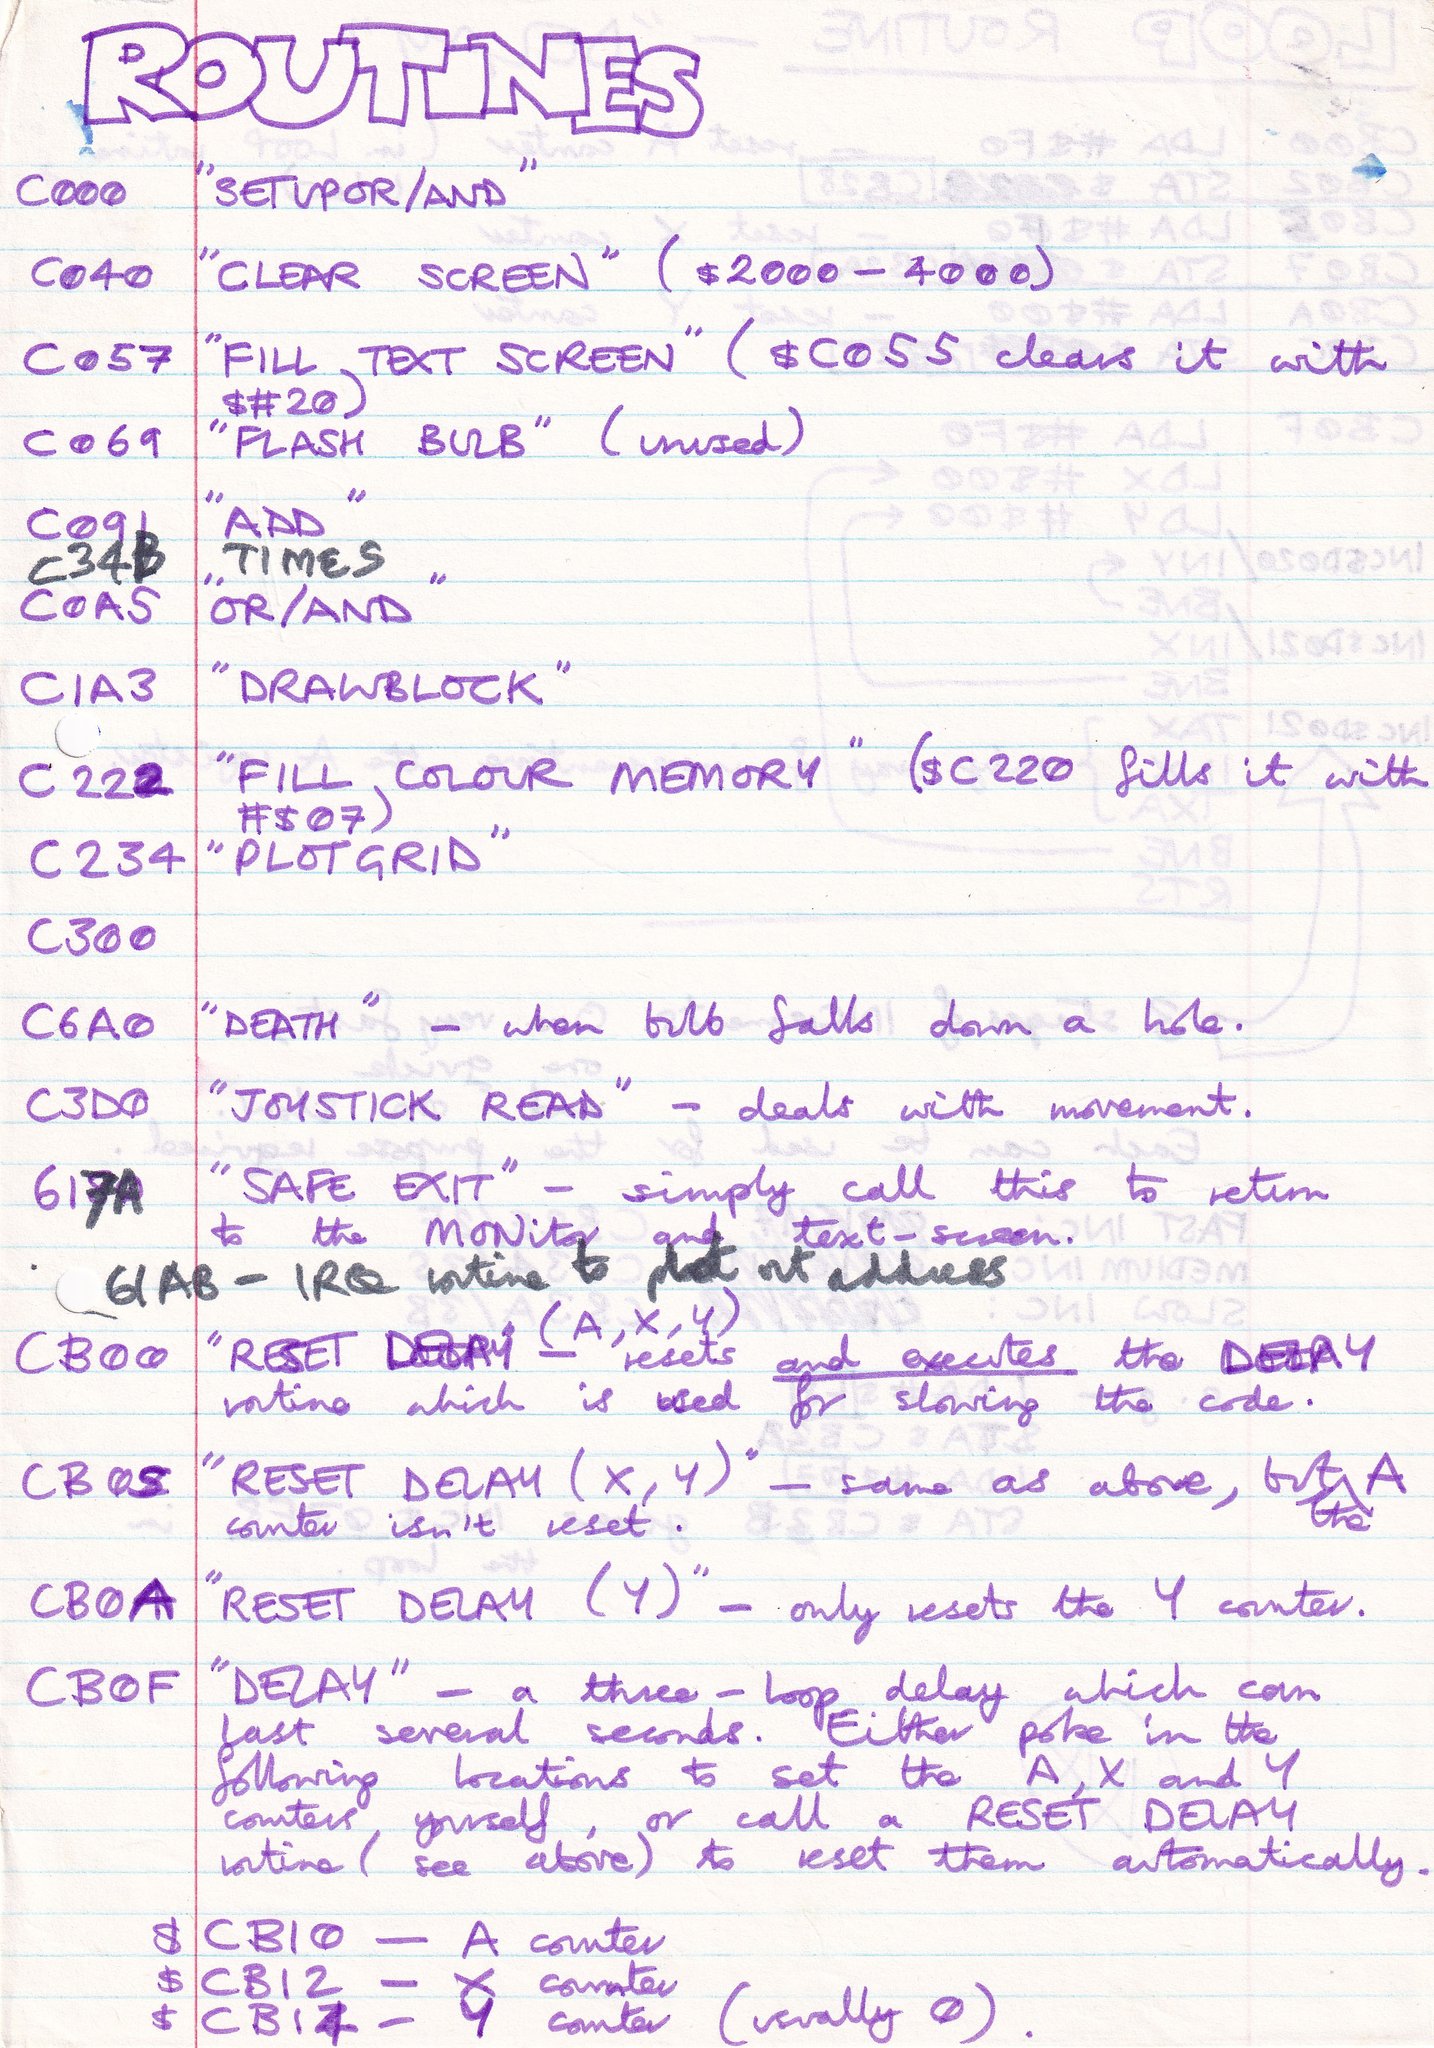 ROUTINES
C000 "SETUPOR/AND"
C040 "CLEAR SCREEN" ($2000 - 4000)
C057 "FILL TEXT SCREEN" ($C055 clears it with
$#20)
C069 "FLASH BULB" (unused)
C091 "ADD"
C34B TIMES
C0A5 "OR/AND"
C1A3 "DRAWBLOCK"
C222 "FILL COLOUR MEMORY" ($C220 fills it with
#$07)
C234 "PLOTGRID"
C300
C6A0 "DEATH" - when bulb falls down a hole.
C3D0 "JOYSTICK READ" - deals with movement.
617A "SAFE EXIT" - simply call this to return
to the MONitor and text-screen.
61AB - IRQ routine to plot out address
CB00 "RESET DELAY" (A,X,Y) - resets and executes the DELAY
routine which is used for slowing the code.
CB05 "RESET DELAY (X,Y)" - same as above, but the A
counter isn't reset.
CB0A "RESET DELAY (Y)" - only resets the Y counter.
CB0F "DELAY" - a three-loop delay which can
last several seconds. Either poke in the
following locations to set the A, X and Y
counters yourself, or call a RESET DELAY
routine (see above) to reset them automatically.
$CB10 - A counter
$CB12 - X counter
$CB14 - Y counter (usually 0).